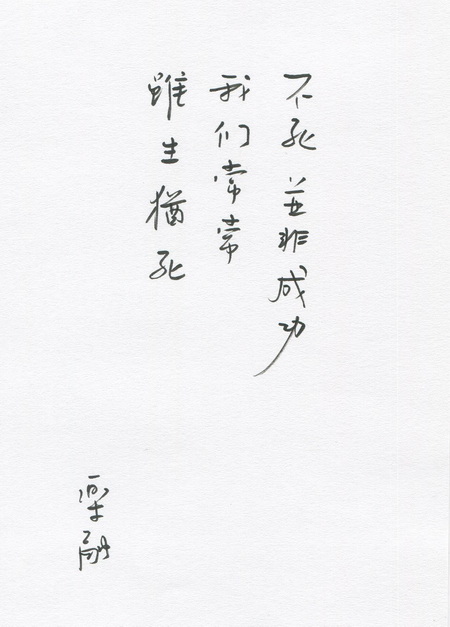 不死並非成功
我们常常
雖生猶死
栗融